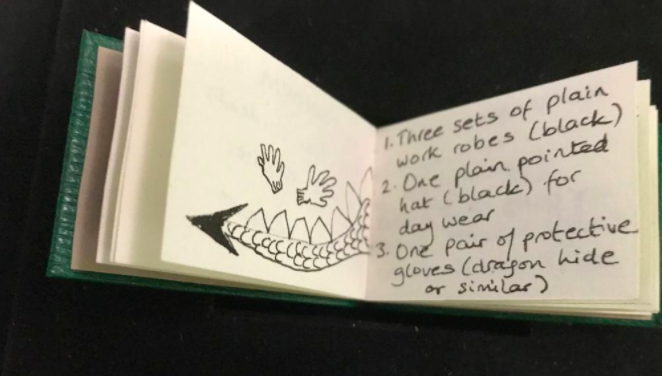 1. Three sets of plain
work robes (black)
2. One plain pointed
hat (black) for
day wear
3. One pair of protective
gloves (dragon hide
or similar)